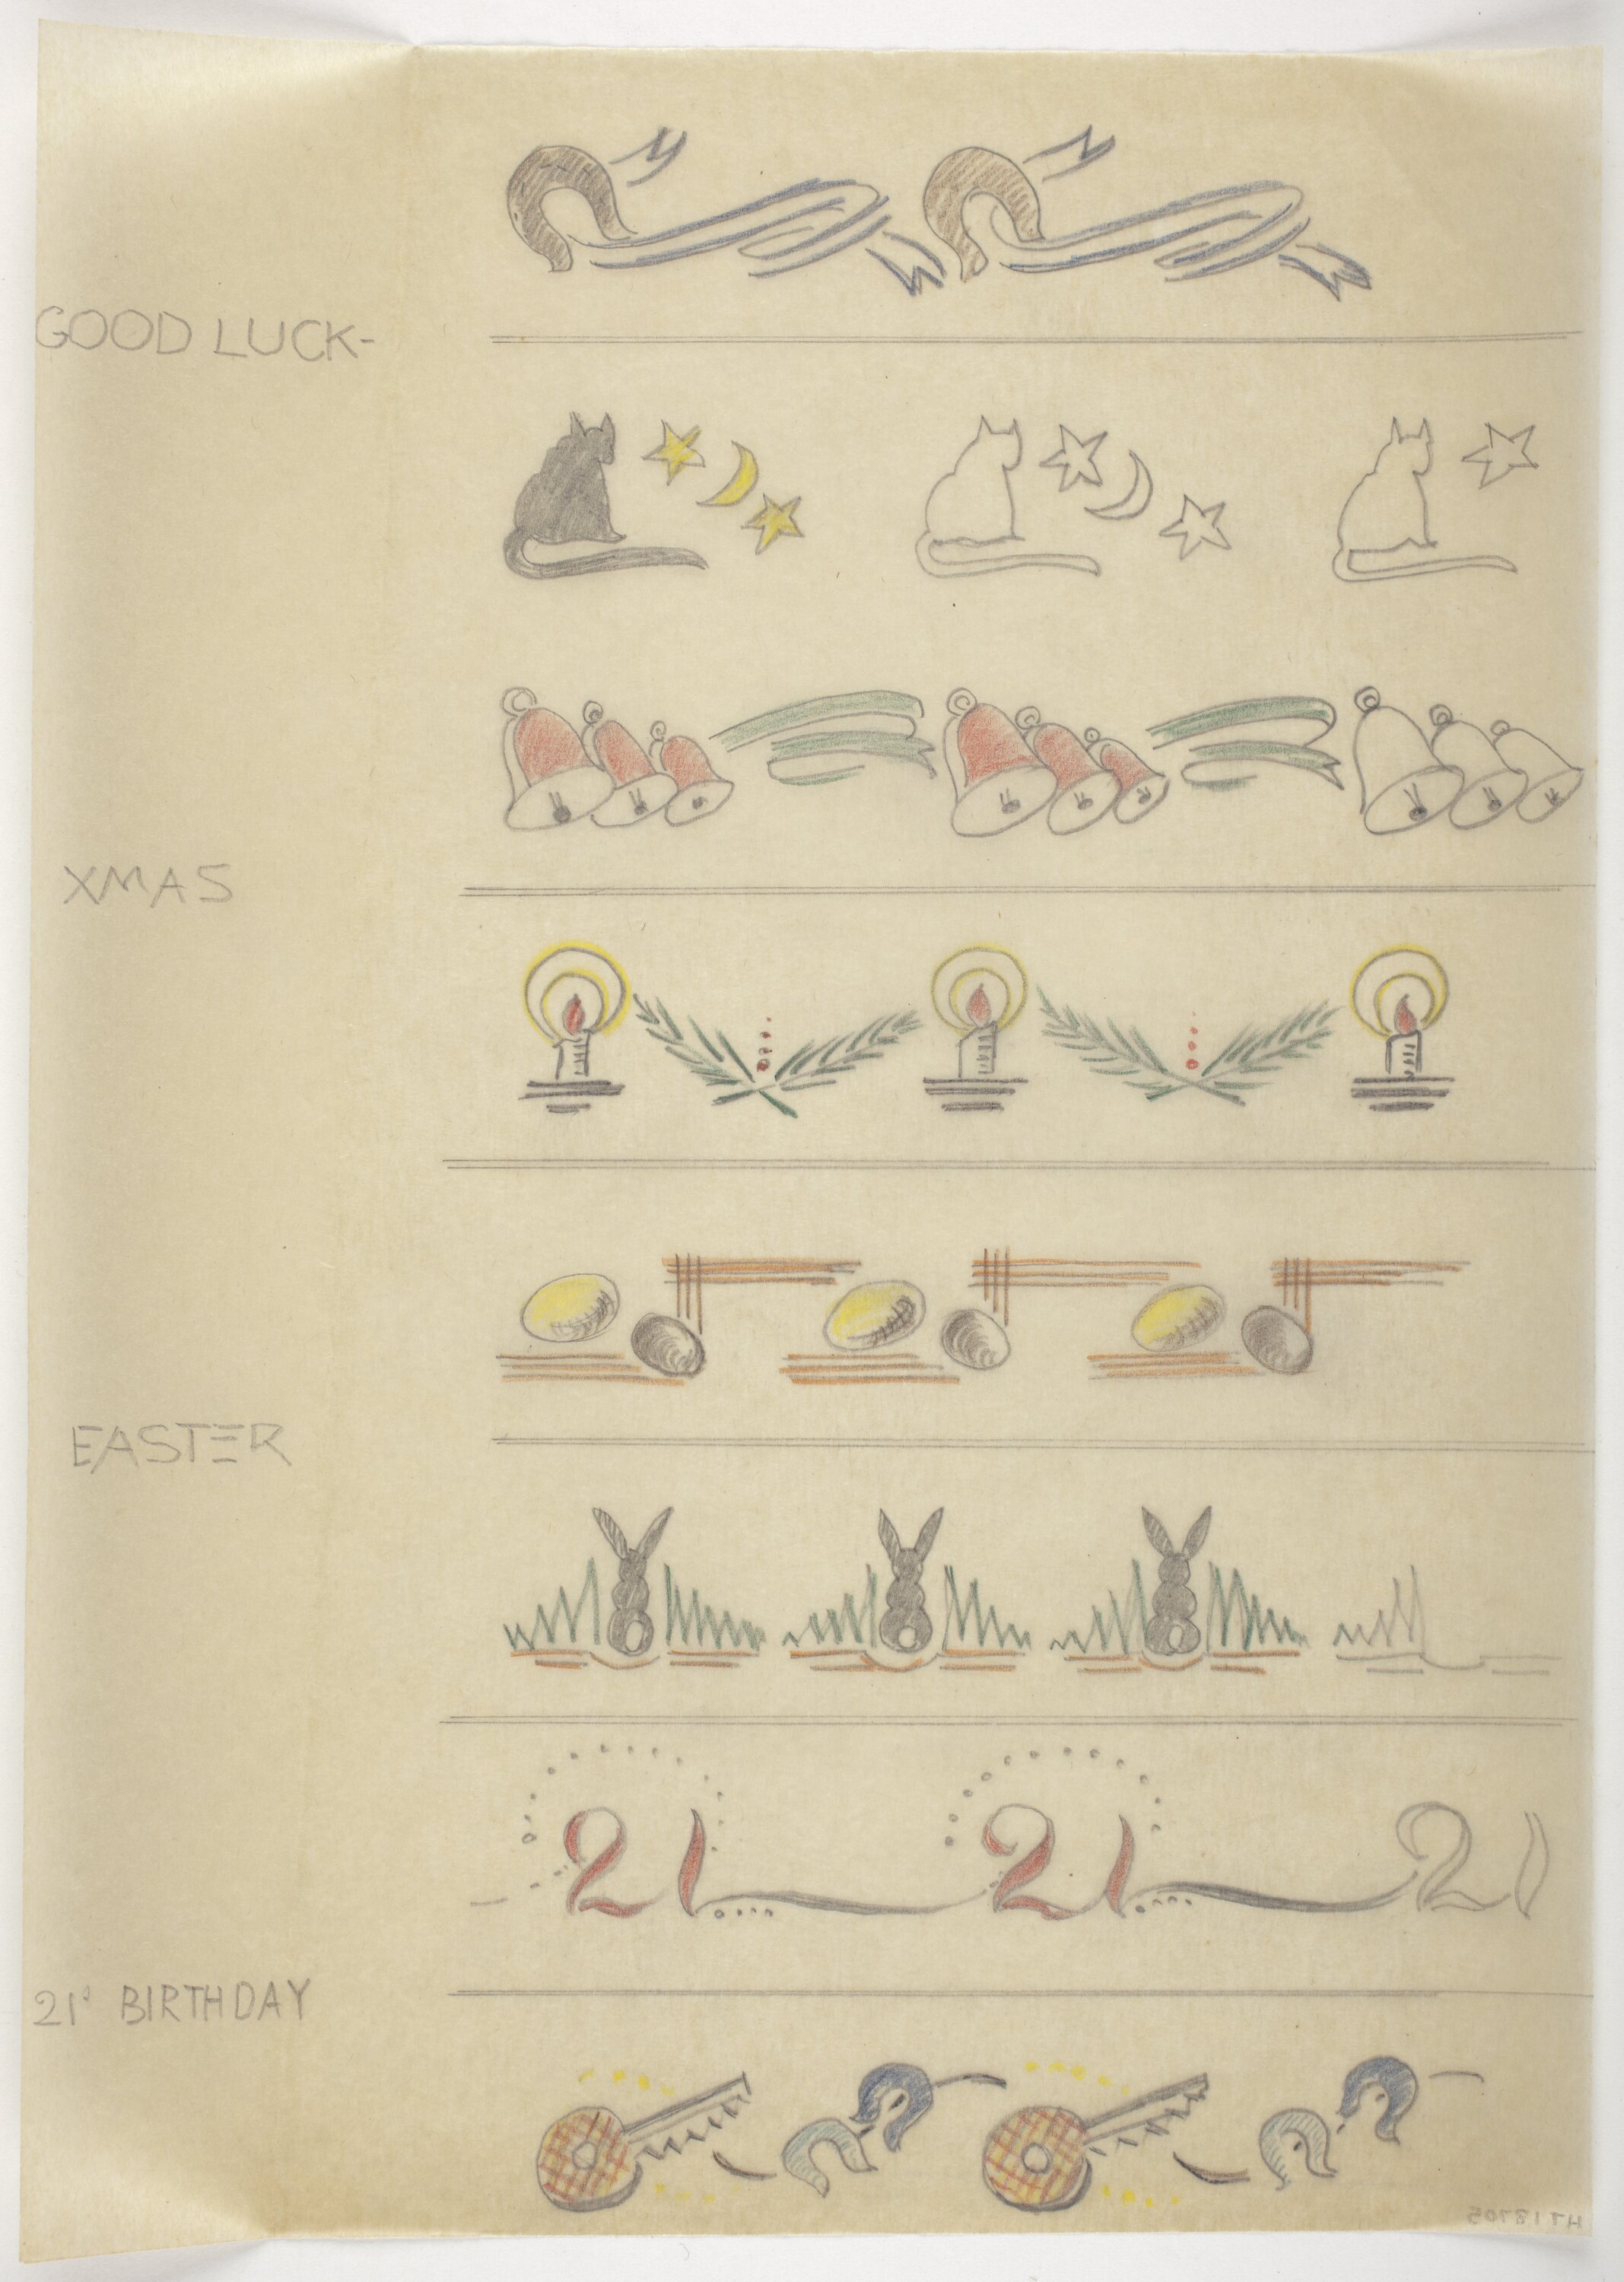 GOOD LUCK-
XMAS
EASTER
21 21 21
21° BIRTHDAY
HT 18705